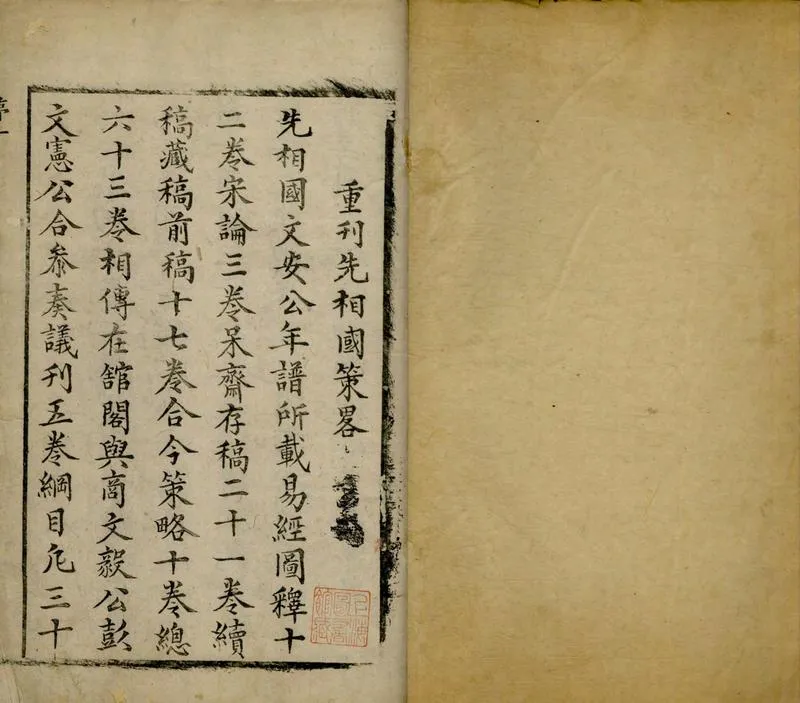 重刊先相國策畧
先相國文安公年譜所載易經圖釋十
二卷宋論三卷呆齋存稿二十一卷續
稿藏稿前稿十七卷合今策略十卷總
六十三卷相傳在舘閣與商文毅公彭
文憲公合叅奏議刊五卷綱目凡三十